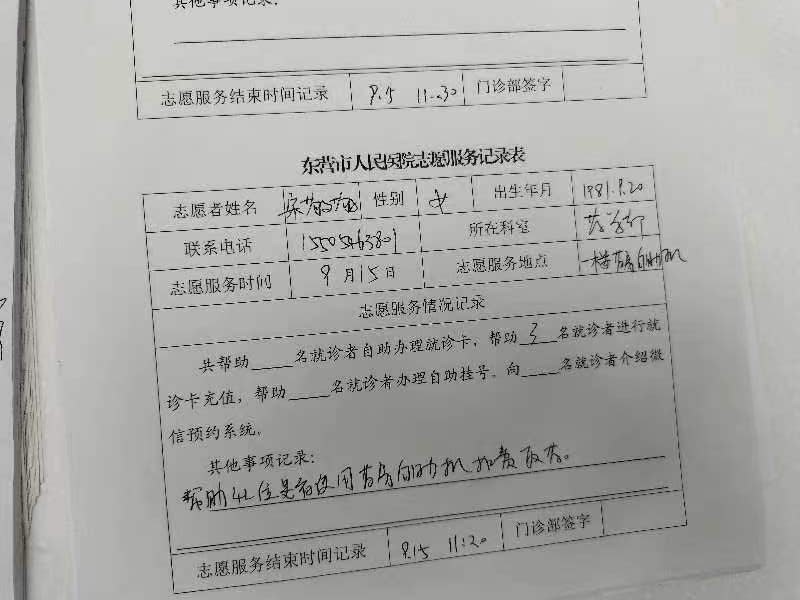 其他事项记录:
志愿服务结束时间记录 9.5 11:30 门诊部签字
东营市人民医院志愿服务记录表
志愿者姓名 性别 女 出生年月 1981.9.20
联系电话 15505463801 所在科室 药学部
志愿服务时间 9月15日 志愿服务地点 一楼药房自助机
志愿服务情况记录
共帮助____名就诊者自助办理就诊卡,帮助 3 名就诊者进行就
诊卡充值,帮助____名就诊者办理自助挂号。向____名就诊者介绍微
信预约系统。
其他事项记录:
帮助42位患者使用药房自助机扣费取药。
志愿服务结束时间记录 9.15 11:20 门诊部签字